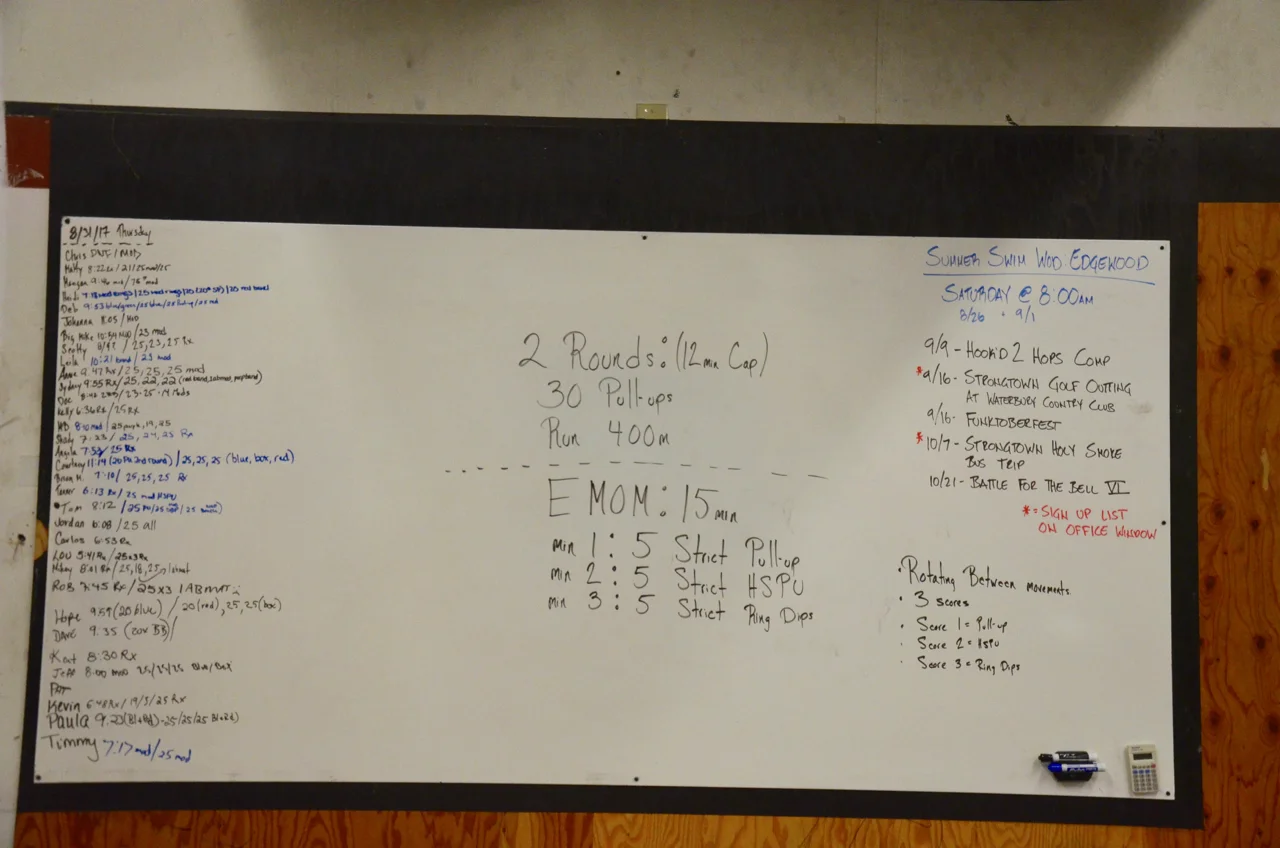 8/31/17 Thursday
Chris DNF / MOD
Matty 8:22 / 21/25 mod/25
Morgan 9:40
Heidi
Deb 9:53
Johanna
Big Mike 10:54 Mod / 23 mod
Scotty / 25, 23, 25 Rx
Leila 10:21 band / 23 mod
Annie 9:47 Rx / 25, 25, 25 mod
Sydney 9:55 Rx / 25, 22, 22
Doc
Kelly 6:36 Rx / 25 Rx
25
Shady 7:23 / 25, 24, 25 Rx
Angela 7:53 / 25 Rx
Courtney 11:19 (20 Pu 2nd round) / 25, 25, 25 (blue, box, red)
Brian M. 7:10 / 25, 25, 25 Rx
Tanner 6:13 Rx / 25 mod HSPU
Tom 8:12 / 25
Jordan 6:08 / 25 all
Carlos 6:53 Rx
Lou 5:41 Rx / 25x3 Rx
Mikey 8:01 Rx / 25, 18, 25
Rob 7:45 Rx / 25x3 1 ABMAT
Hope 9:59 (20 blue) / 20 (red), 25, 25 (box)
Dave 9:35 (20x BB) /
Kat 8:30 Rx
Jeff 8:00 mod 25/25/25 Blue/Box
Pat
Kevin 6:48 Rx / 19/5/25 Rx
Paula 9:20 (Bl+Rd) - 25/25/25 Bl+Rd)
Timmy 7:17 mod / 25 mod
2 Rounds: (12 min Cap)
30 Pull-ups
Run 400m
EMOM: 15 min
min 1: 5 Strict Pull-up
min 2: 5 Strict HSPU
min 3: 5 Strict Ring Dips
Summer Swim Wod Edgewood
Saturday @ 8:00am
8/26 · 9/1
9/9 - Hook'd 2 Hops Comp
*9/16 - Strongtown Golf Outting
at Waterbury Country Club
9/16 - Funktoberfest
*10/7 - Strongtown Holy Smoke
Bus Trip
10/21 - Battle For The Bell VI
* = Sign up list
on office window
· Rotating Between movements
· 3 scores
· Score 1 = Pull-up
· Score 2 = HSPU
· Score 3 = Ring Dips